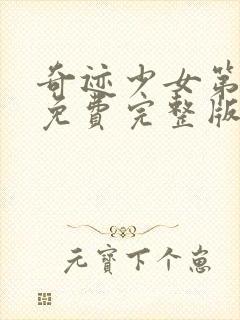 奇迹少女第
免费完整版
元寳下个崽